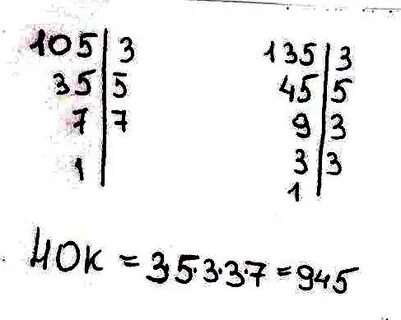 105 | 3
35 | 5
7 | 7
1 |
135 | 3
45 | 5
9 | 3
3 | 3
1 |
НОК = 3·5·3·3·7 = 945